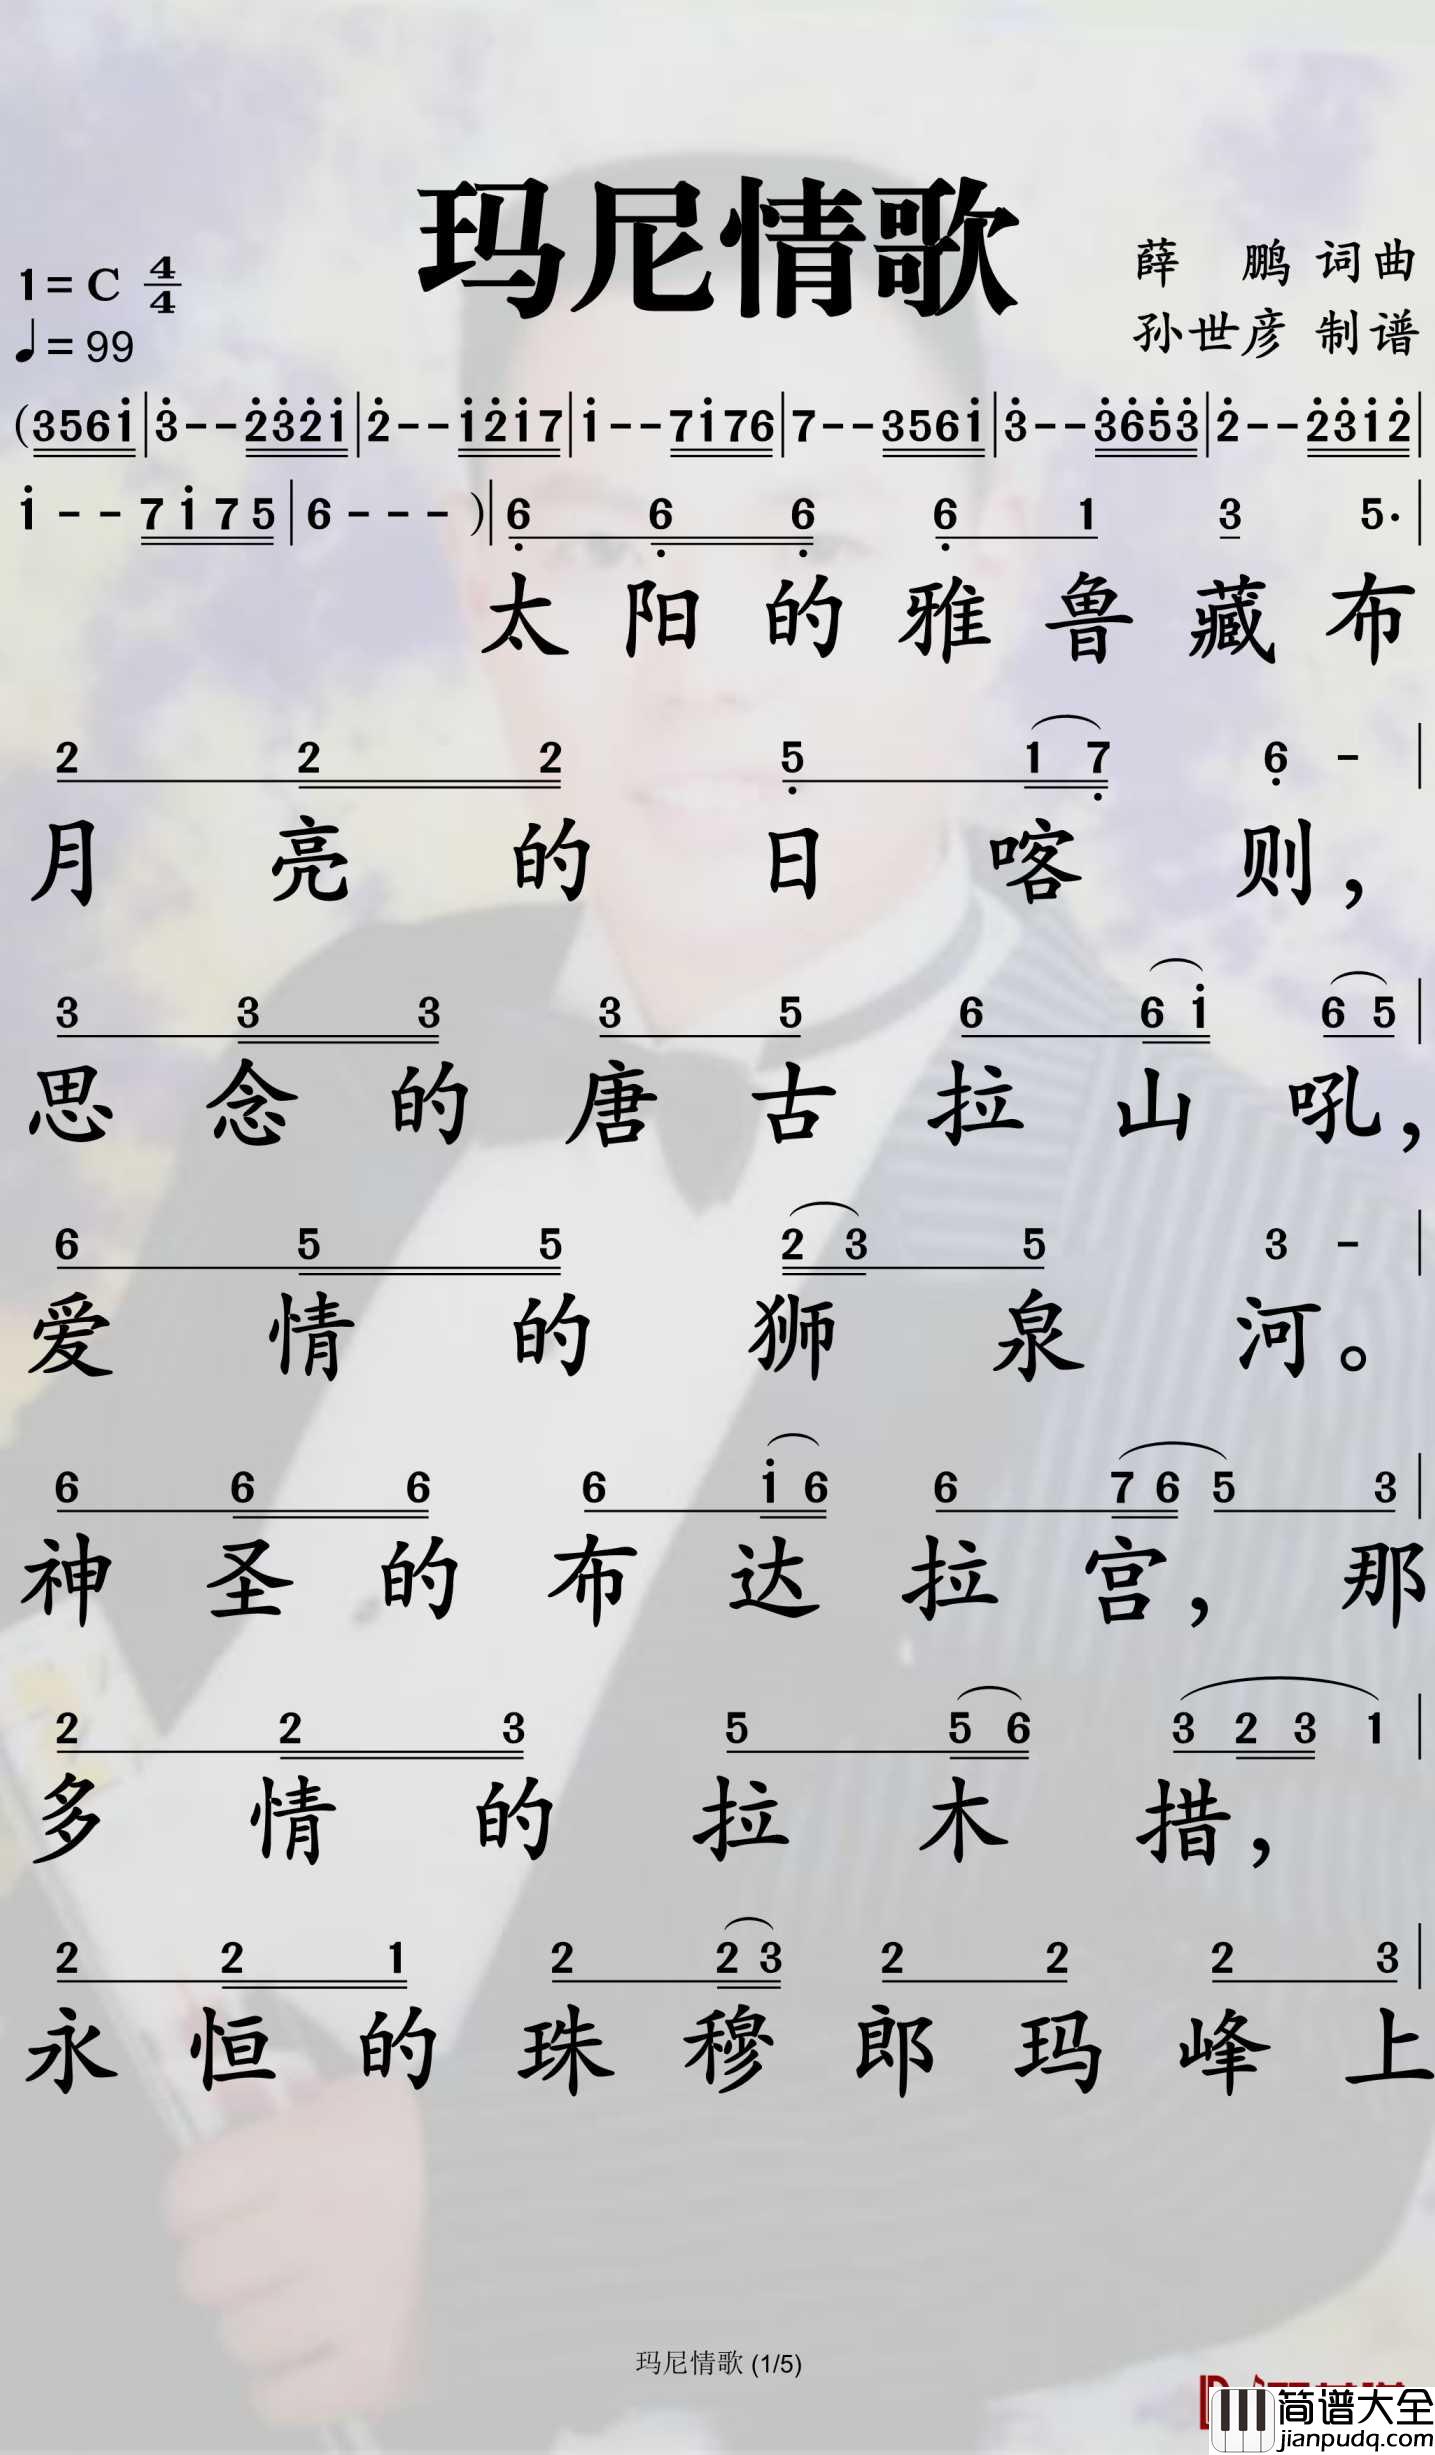 玛尼情歌
1=C 4/4
薛 鹏 词曲
♩=99
孙世彦 制谱
(3561̇|3̇--2̇3̇2̇1̇|2̇--1̇2̇1̇7|1̇--71̇76|7--3561̇|3̇--3̇6̇5̇3̇|2̇--2̇3̇1̇2̇|
1̇--71̇75|6---)|6̣ 6̣ 6̣ 6̣ 1 3 5.|
太阳的雅鲁藏布
2 2 2 5̣ 1 7̣ 6̣ -|
月亮的日喀则，
3 3 3 3 5 6 6 1̇ 6 5|
思念的唐古拉山吼，
6 5 5 2 3 5 3 -|
爱情的狮泉河。
6 6 6 6 1̇ 6 6 7 6 5 3|
神圣的布达拉宫，那
2 2 3 5 5 6 3 2 3 1|
多情的拉木措，
2 2 1 2 2 3 2 2 2 3|
永恒的珠穆郎玛峰上
玛尼情歌 (1/5)
简谱大全
jianpudq.com